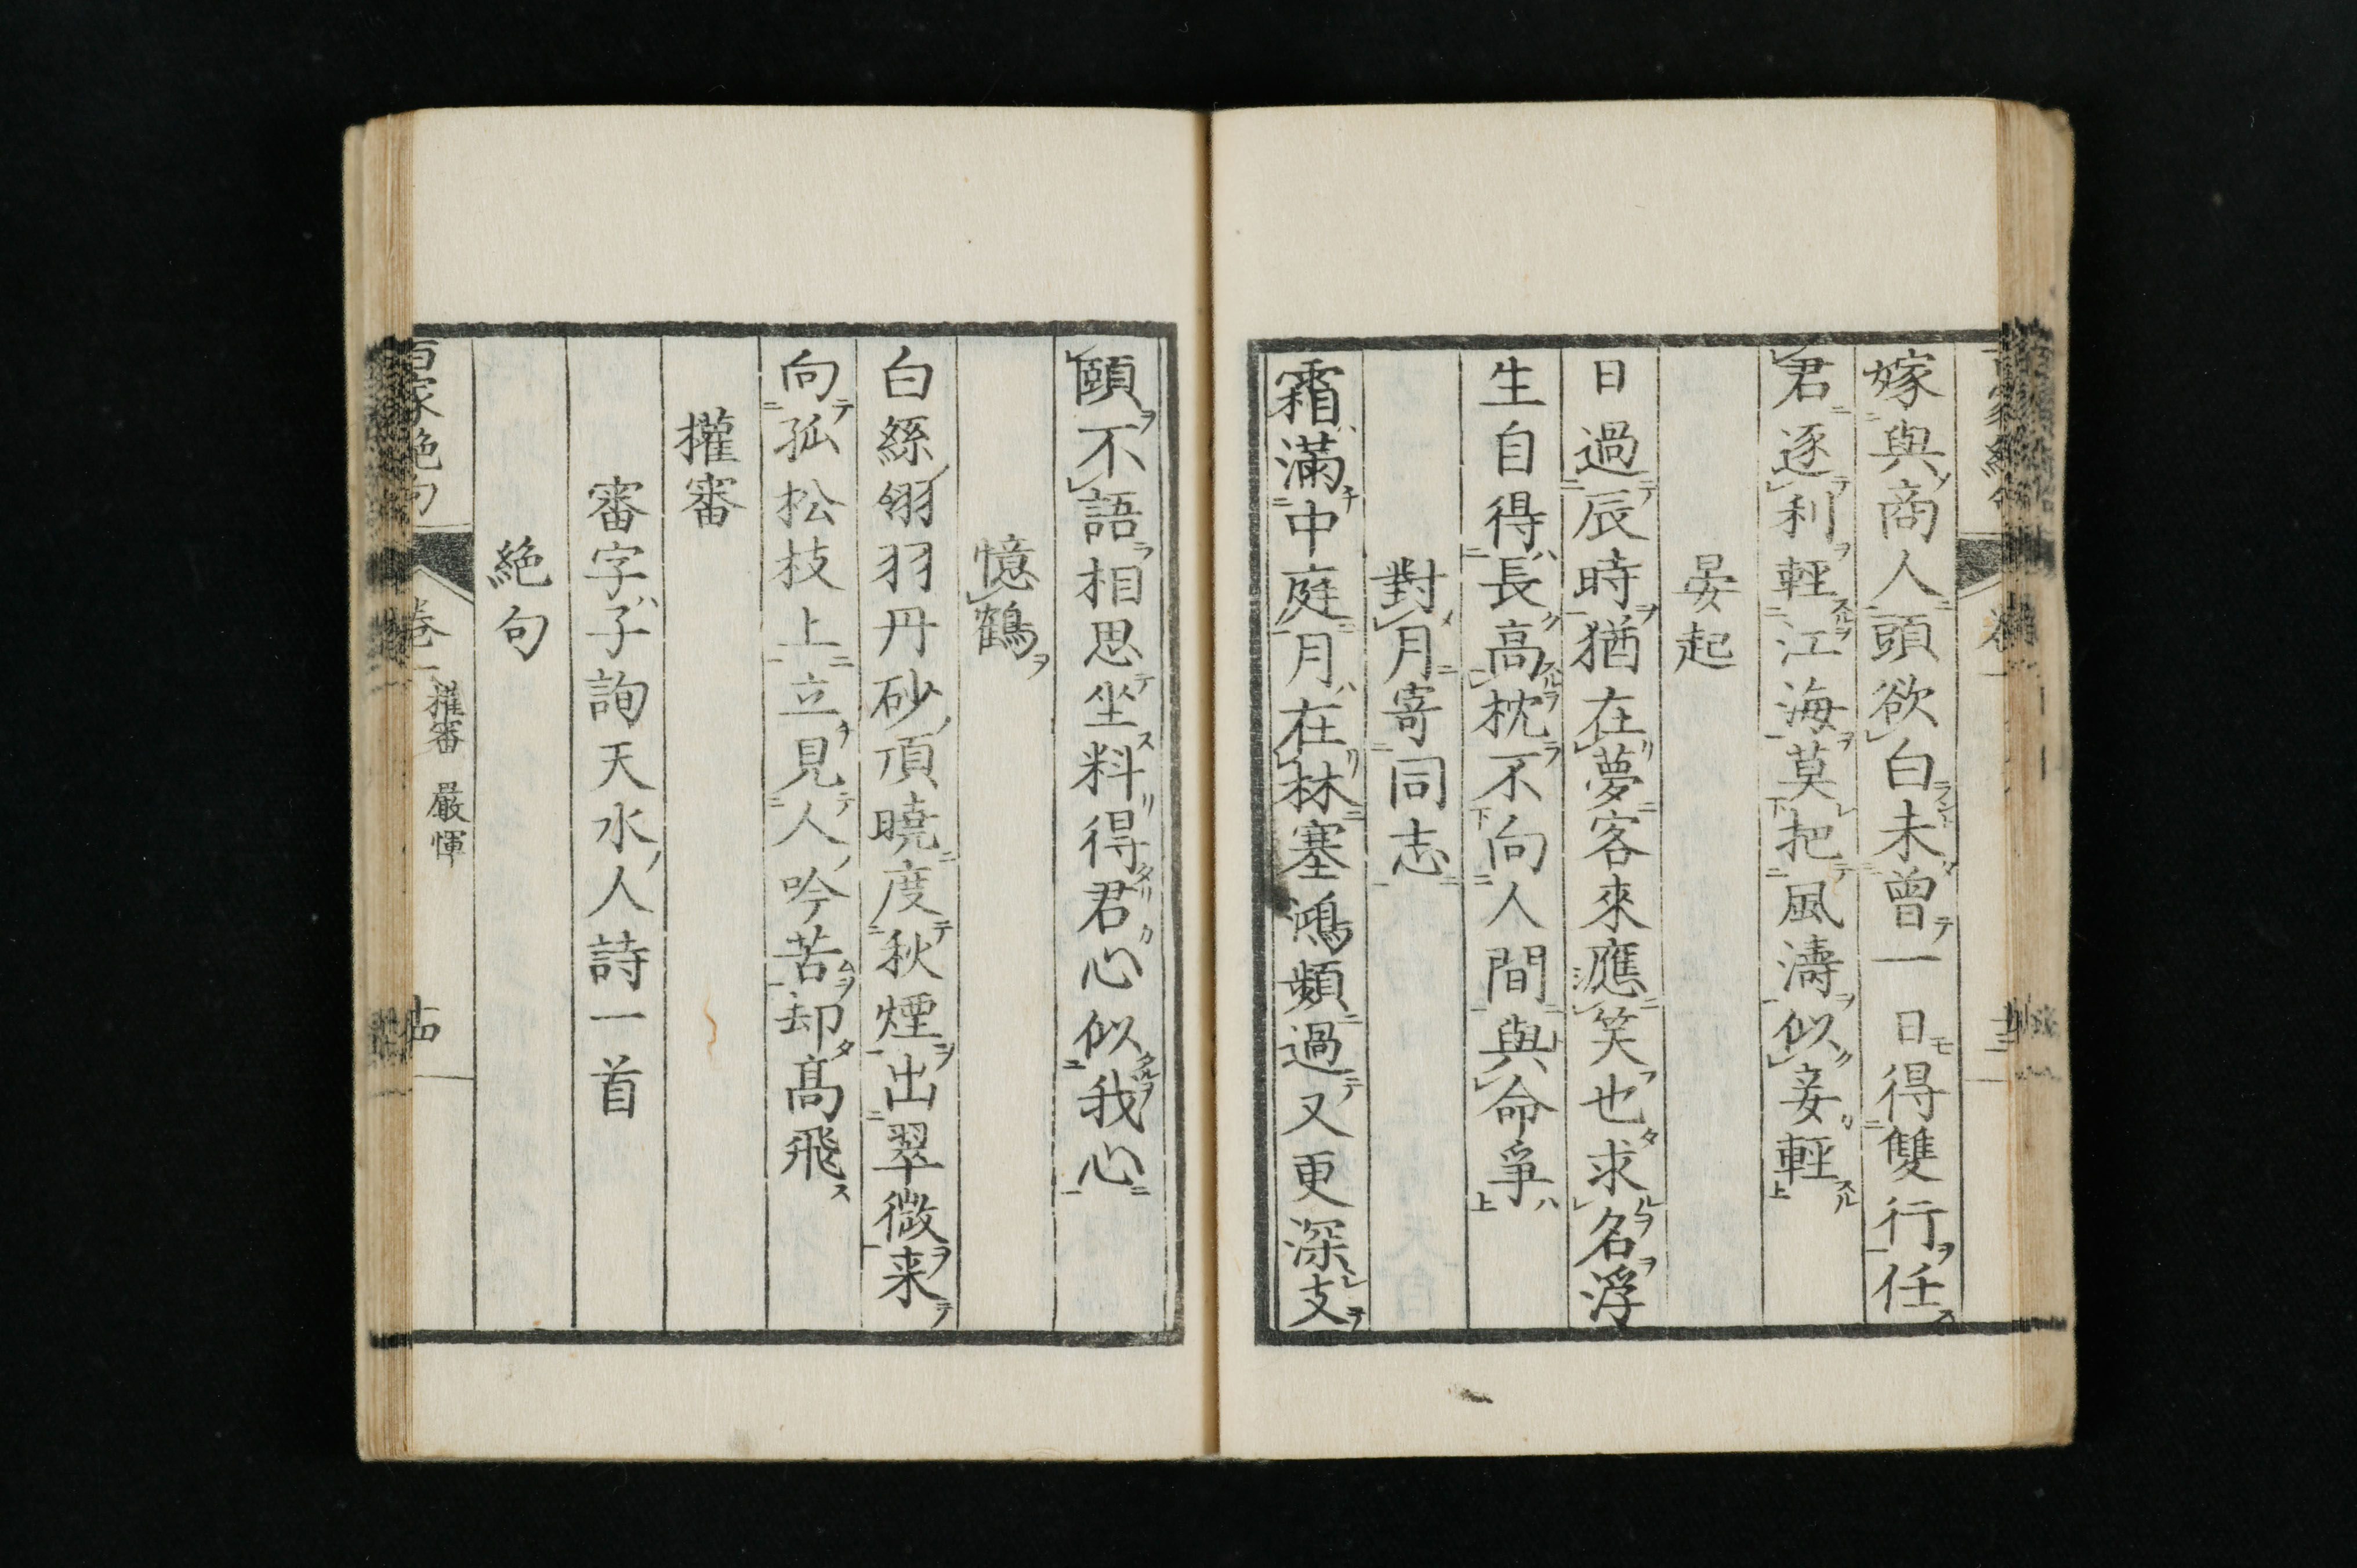 嫁與商人頭欲白未曾一日得雙行任
君逐利輕江海莫把風濤似妾輕
晏起
日過辰時猶在夢客來應笑也求名浮
生自得長高枕不向人間與命爭
對月寄同志
霜滿中庭月在林塞鴻頻過又更深支
頤不語相思坐料得君心似我心
憶鶴
白絲翎羽丹砂頂曉度秋煙出翠微来
向孤松枝上立見人吟苦却髙飛
權審
審字子詢天水人詩一首
絶句
百家絶句
卷一
權審 嚴惲